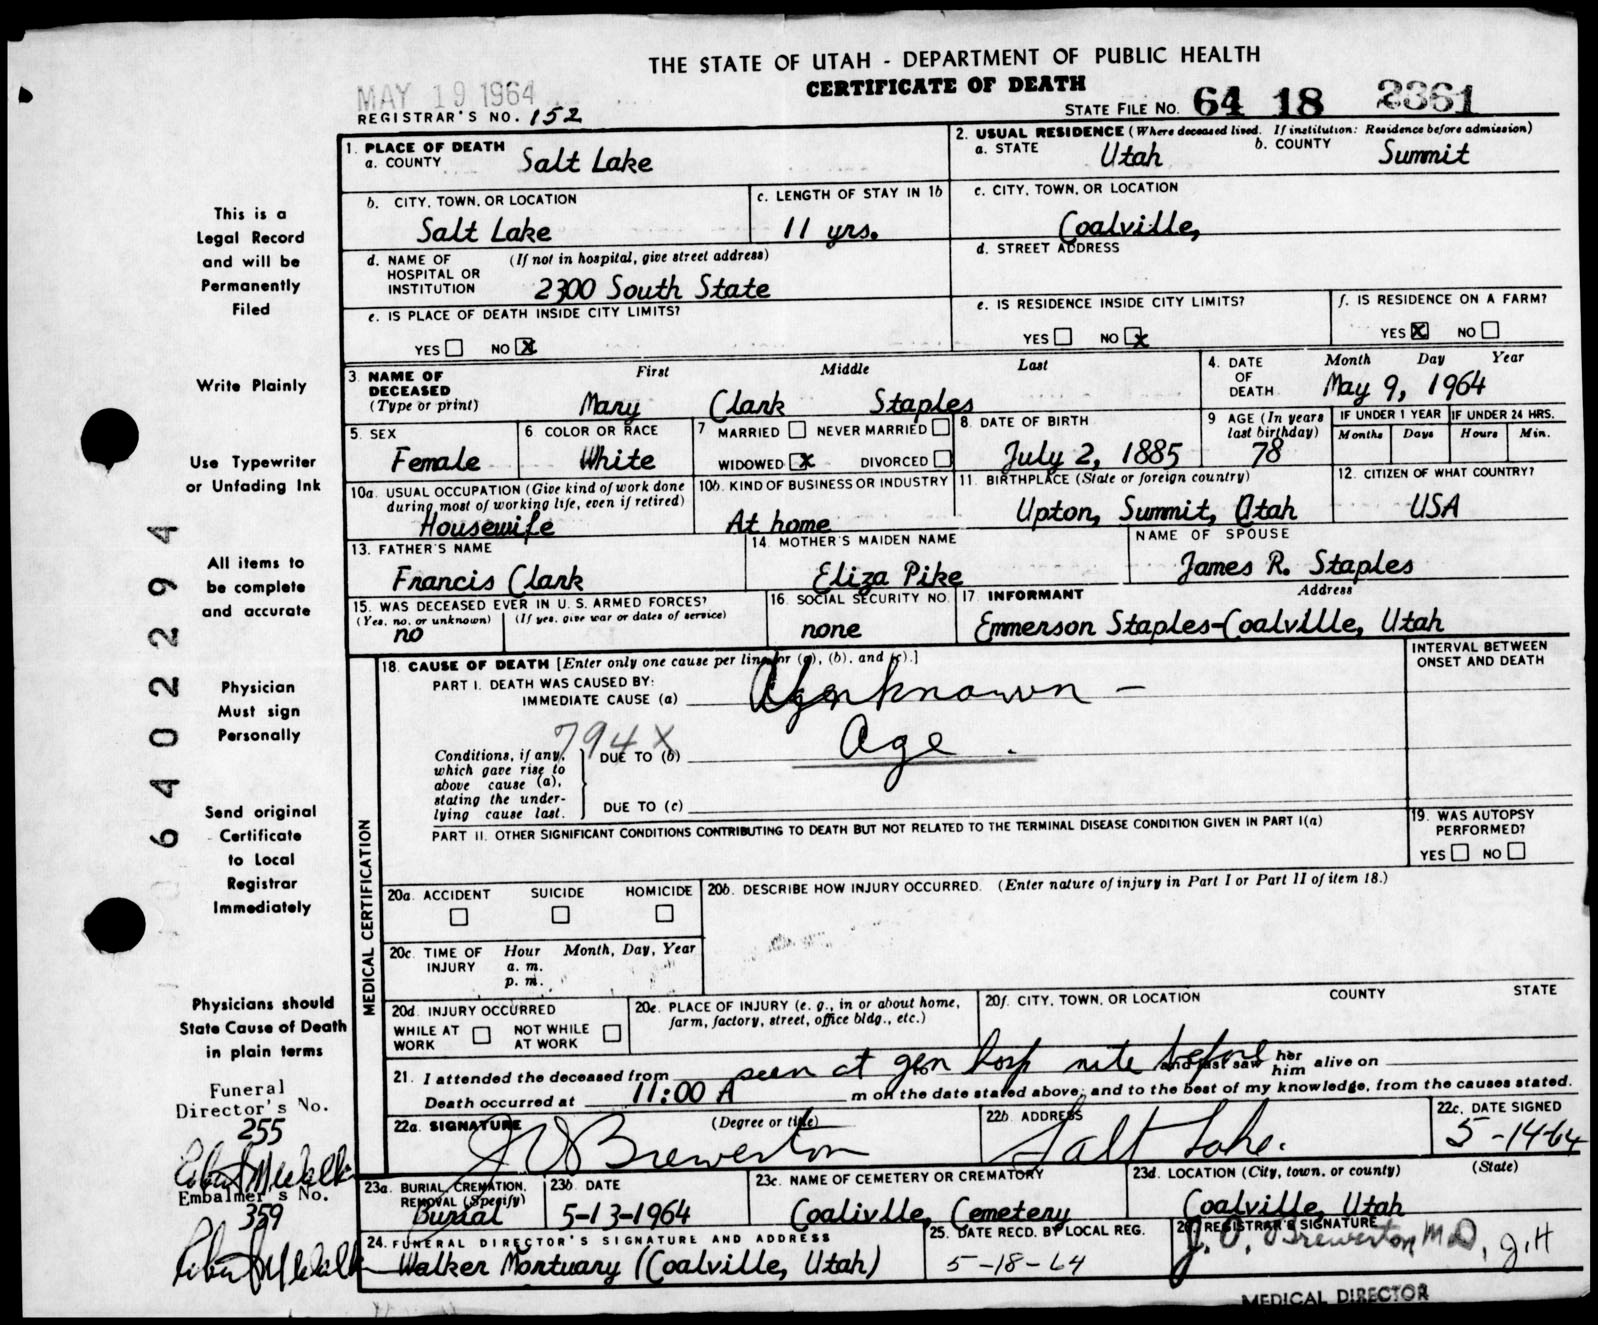 THE STATE OF UTAH - DEPARTMENT OF PUBLIC HEALTH
CERTIFICATE OF DEATH
MAY 19 1964
REGISTRAR'S NO. 152
STATE FILE NO. 64 18 2361
1. PLACE OF DEATH
a. COUNTY Salt Lake
2. USUAL RESIDENCE (Where deceased lived. If institution: Residence before admission)
a. STATE Utah b. COUNTY Summit
b. CITY, TOWN, OR LOCATION Salt Lake
c. LENGTH OF STAY IN 1b 11 yrs.
c. CITY, TOWN, OR LOCATION Coalville,
d. NAME OF HOSPITAL OR INSTITUTION (If not in hospital, give street address)
2300 South State
d. STREET ADDRESS
e. IS PLACE OF DEATH INSIDE CITY LIMITS?
YES NO X
e. IS RESIDENCE INSIDE CITY LIMITS?
YES NO X
f. IS RESIDENCE ON A FARM?
YES X NO
3. NAME OF DECEASED (Type or print)
First Middle Last
Mary Clark Staples
4. DATE OF DEATH Month Day Year
May 9, 1964
5. SEX Female
6. COLOR OR RACE White
7 MARRIED NEVER MARRIED
WIDOWED X DIVORCED
8. DATE OF BIRTH July 2, 1885
9 AGE (In years last birthday) 78
IF UNDER 1 YEAR IF UNDER 24 HRS.
Months Days Hours Min.
10a. USUAL OCCUPATION (Give kind of work done during most of working life, even if retired)
Housewife
10b. KIND OF BUSINESS OR INDUSTRY
At home
11. BIRTHPLACE (State or foreign country)
Upton, Summit, Utah
12. CITIZEN OF WHAT COUNTRY?
USA
13. FATHER'S NAME
Francis Clark
14. MOTHER'S MAIDEN NAME
Eliza Pike
NAME OF SPOUSE
James R. Staples
15. WAS DECEASED EVER IN U. S. ARMED FORCES?
(Yes, no, or unknown) (If yes, give war or dates of service)
no
16. SOCIAL SECURITY NO.
none
17. INFORMANT Address
Emmerson Staples-Coalville, Utah
MEDICAL CERTIFICATION
18. CAUSE OF DEATH [Enter only one cause per line for (a), (b), and (c).]
INTERVAL BETWEEN ONSET AND DEATH
PART I. DEATH WAS CAUSED BY:
IMMEDIATE CAUSE (a) Unknown -
794X
Conditions, if any, which gave rise to above cause (a), stating the underlying cause last.
DUE TO (b) Age.
DUE TO (c)
PART II. OTHER SIGNIFICANT CONDITIONS CONTRIBUTING TO DEATH BUT NOT RELATED TO THE TERMINAL DISEASE CONDITION GIVEN IN PART I(a)
19. WAS AUTOPSY PERFORMED?
YES NO
20a. ACCIDENT SUICIDE HOMICIDE
20b. DESCRIBE HOW INJURY OCCURRED. (Enter nature of injury in Part I or Part II of item 18.)
20c. TIME OF INJURY Hour Month, Day, Year
a. m.
p. m.
20d. INJURY OCCURRED
WHILE AT WORK NOT WHILE AT WORK
20e. PLACE OF INJURY (e. g., in or about home, farm, factory, street, office bldg., etc.)
20f. CITY, TOWN, OR LOCATION COUNTY STATE
21. I attended the deceased from seen at gen hosp nite before and last saw her him alive on
Death occurred at 11:00 A m on the date stated above; and to the best of my knowledge, from the causes stated.
22a. SIGNATURE (Degree or title)
J O Brewerton
22b. ADDRESS
Salt Lake.
22c. DATE SIGNED
5-14-64
23a. BURIAL, CREMATION, REMOVAL (Specify)
Burial
23b. DATE
5-13-1964
23c. NAME OF CEMETERY OR CREMATORY
Coalivlle, Cemetery
23d. LOCATION (City, town, or county) (State)
Coalville, Utah
24. FUNERAL DIRECTOR'S SIGNATURE AND ADDRESS
Walker Mortuary (Coalville, Utah)
25. DATE RECD. BY LOCAL REG.
5-18-64
26. REGISTRAR'S SIGNATURE
J. O. Brewerton M.D, J.H
MEDICAL DIRECTOR
This is a
Legal Record
and will be
Permanently
Filed
Write Plainly
Use Typewriter
or Unfading Ink
All items to
be complete
and accurate
Physician
Must sign
Personally
Send original
Certificate
to Local
Registrar
Immediately
Physicians should
State Cause of Death
in plain terms
Funeral
Director's No.
255
Embalmer's No.
359
6402294